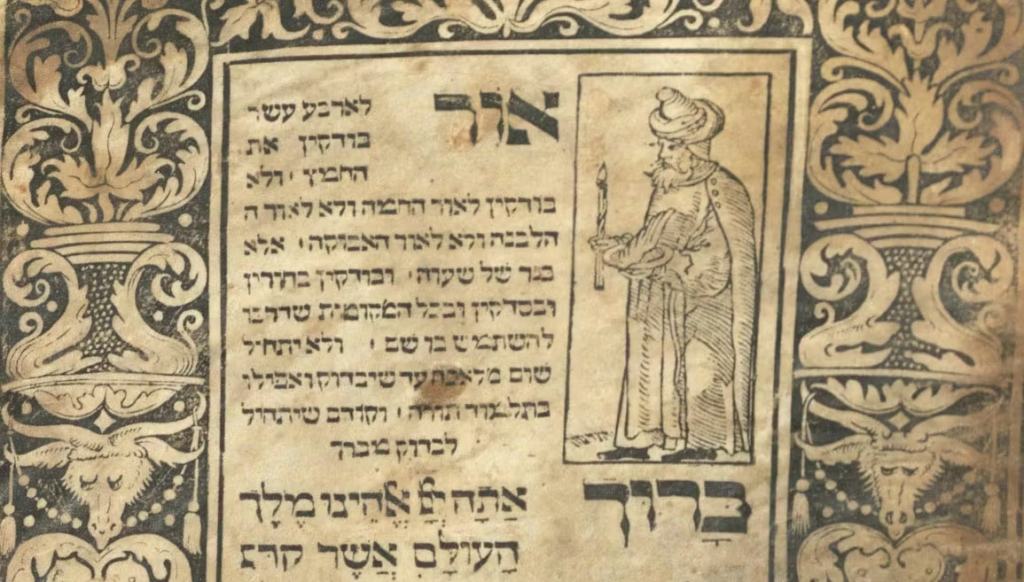 אור לארבע עשר
בודקין את
החמץ ׳ ולא
בודקין לאור החמה ולא לאור ה
הלבנה ולא לאור האבוקה ׳ אלא
בנר של שעוה ׳ ובודקין בחורין
ובסדקין ובכל המקומות שדרכו
להשתמש בו שם ׳ ולא יתחיל
שום מלאכה עד שיבדוק ואפילו
בתלמוד תורה ׳ וקודם שיתחיל
לבדוק מברך
בָּרוּךְ אַתָּה יְיָ אֱלֹהֵינוּ מֶלֶךְ
הָעוֹלָם אֲשֶׁר